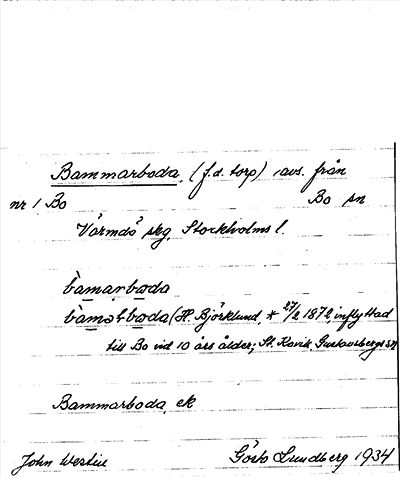 Bammarboda, (f.d. torp) avs. från
nr 1 Bo Bo sn
Värmdö skg, Stockholms l.
bàmarbωda
bàmałbωda (H. Björklund, * 27/2 1872, inflyttad
till Bo vid 10 års ålder, St. Kovik, Gustavsbergs sn)
Bammarboda, ek
John Westin Gösta Lundberg 1934